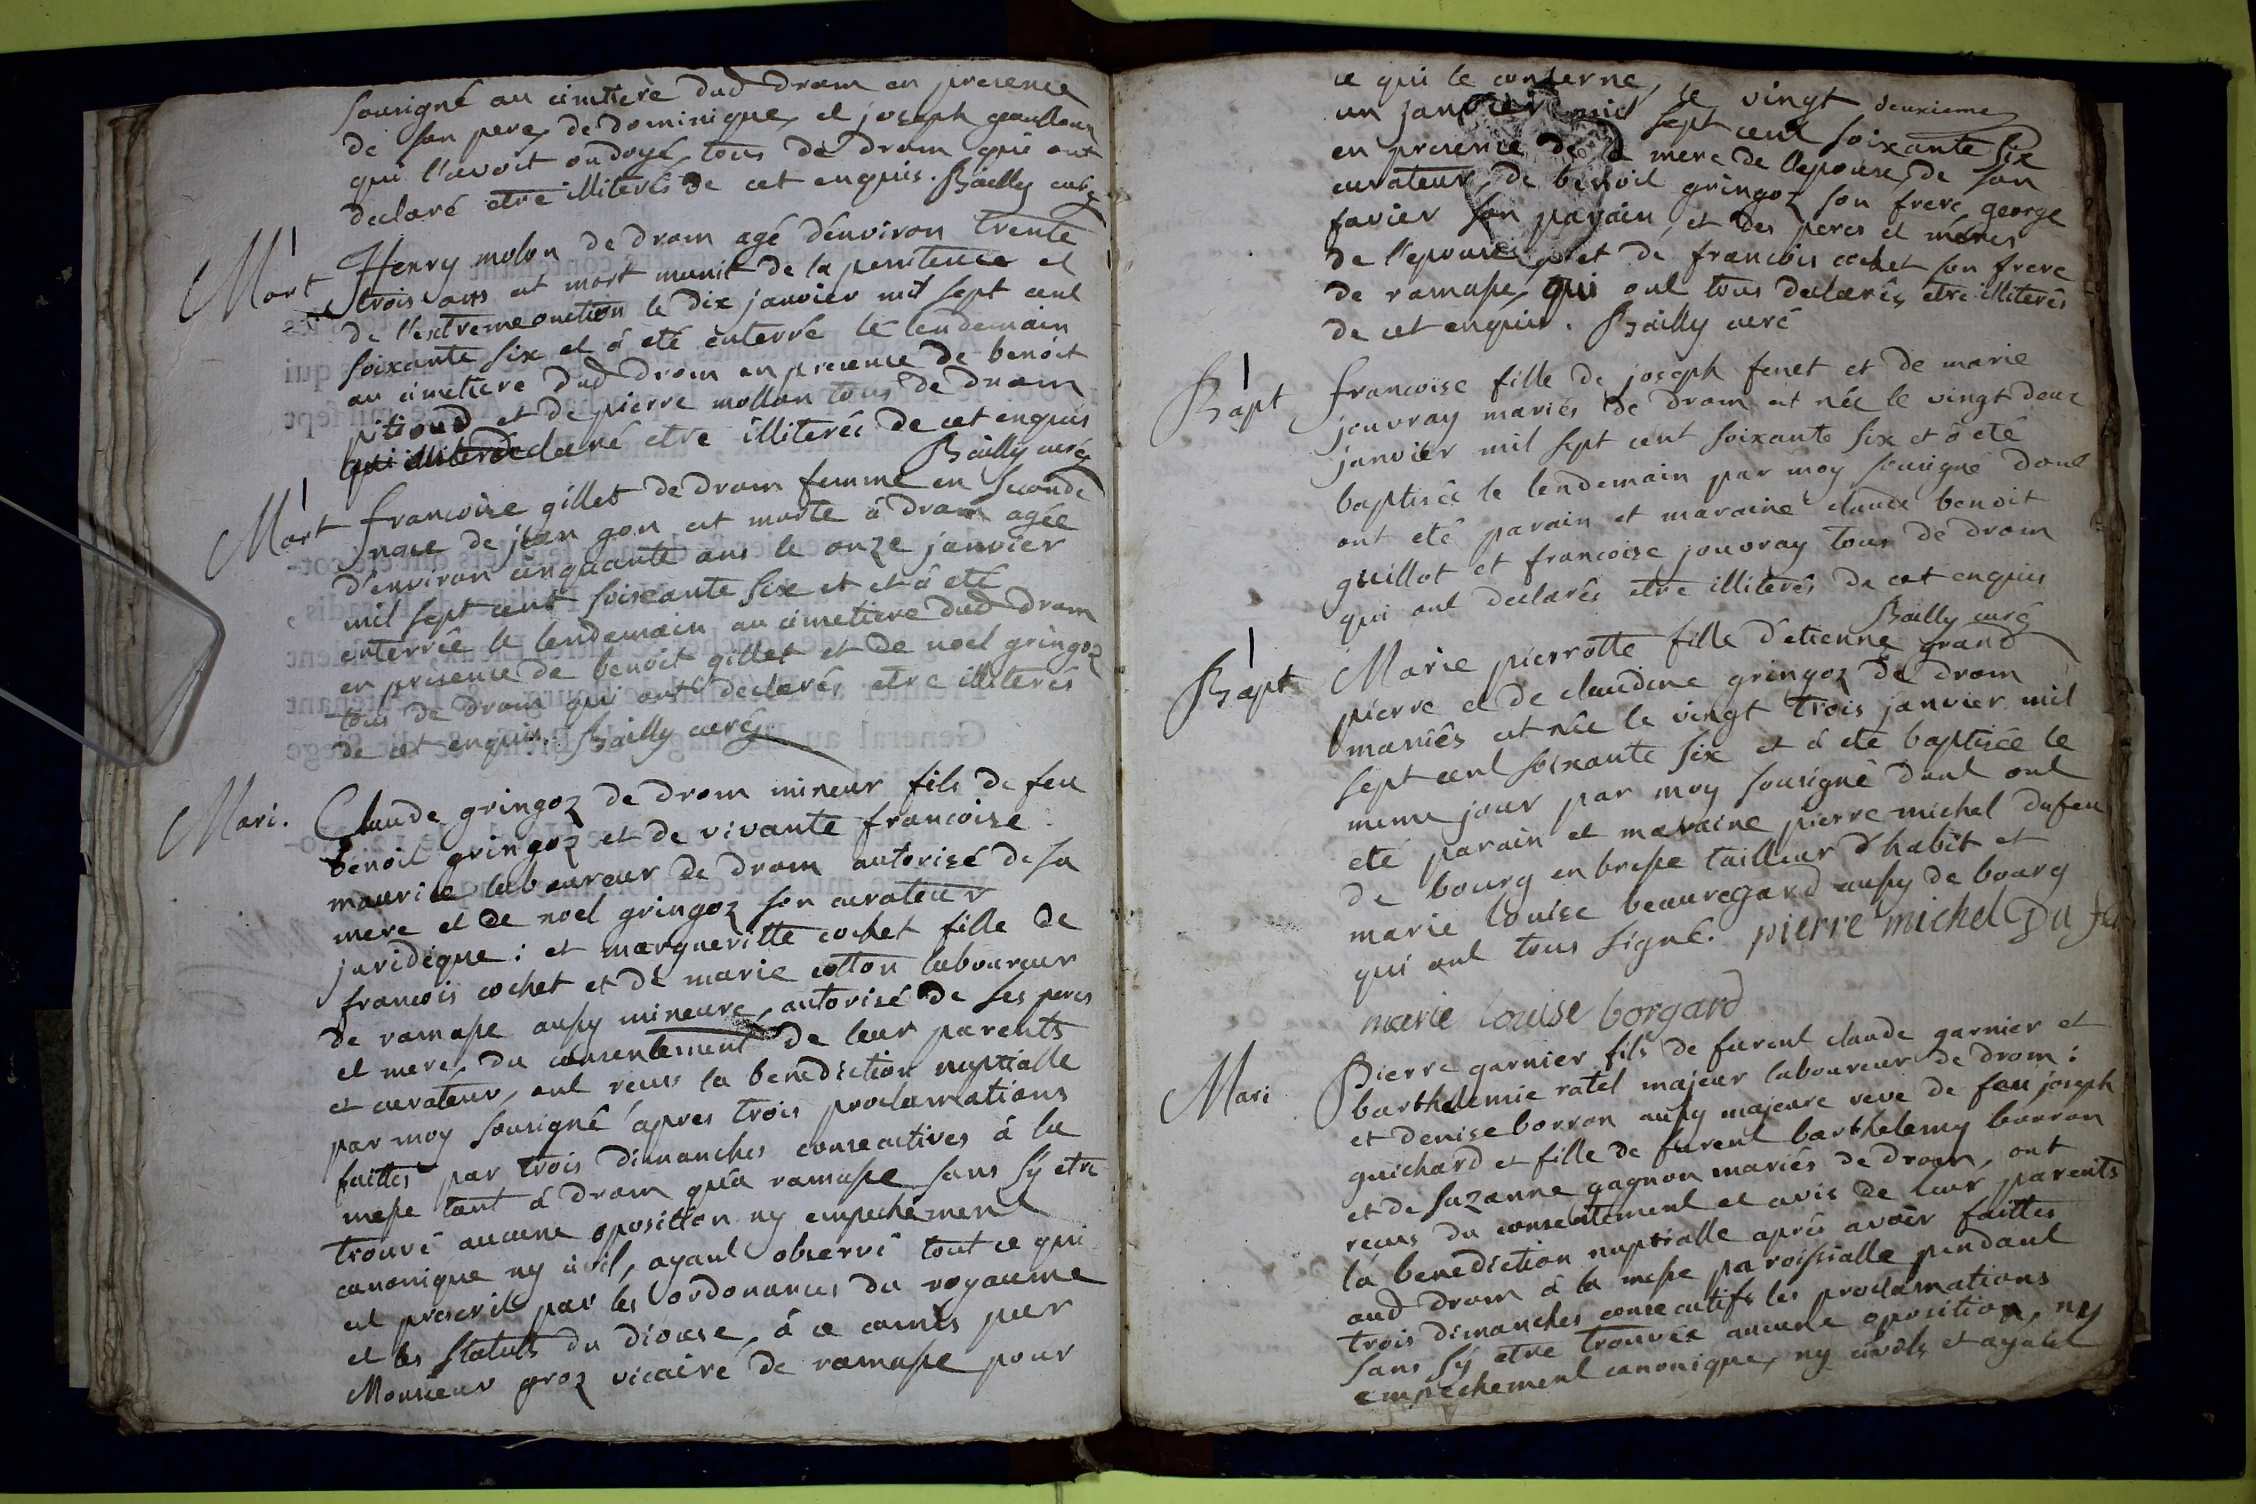 sousigné au cimtiere dud drom en presence
de son pere, de dominique, et joseph
qui l'avoit ondoyé, tous de drom qui ont
declaré etre illiterés de cet enquis. Bailly curé
Mort Henry molon de drom agé d'environ trente
trois ans est mort munit de la penitence et
de l'extremeonction le dix janvier mil sept cent
soixante six et á eté enterré le lendemain
au cimetiere dud drom en presence de benoit
pitioud et de pierre mollon tous de drom
qui declaré etre illiterés de cet enquis
Bailly curé
Mort francoise gillet de drom femme en seconde
noce de jean gon est morte á drom agée
d'environ cinquante ans le onze janvier
mil sept cent soixante six et et á eté
enterrée le lendemain au cimetiere dud drom
en presence de benoit gillet et de noel gringoz
tous de drom qui ont declarés etre illiterés
de cet enquis. Bailly curé
Mari. Claude gringoz de drom mineur fils de feu
benoit gringoz et de vivante francoise
maurice laboureur de drom autorisé de sa
mere et de noel gringoz son curateur
juridique : et margueritte cochet fille de
francois cochet et de marie cotton laboureur
de ramasse aussy mineure, autorisé de ses peres
et mere, du consentement de leur parents
et curateur, ont recus la benediction nuptialle
par moy sousigné apres trois proclamations
faittes par trois dimanches consecutives á la
messe tant á drom qu'a ramasse sans s'y etre
trouvé aucune oposition ny empechement
canonique ny civil, ayant observé tout ce qui
est prescrit par les ordonances du royaume
et les statuts du diocese, á ce comis par
Monsieur groz vicaire de ramasse pour
ce qui le conserne, ce vingt deuxieme
un janvier mil sept cent soixante six
en presence de la mere de l'epouse, de son
curateur, de benoit gringoz son frere, george
favier son parain, et des peres et méres
de l'epouse, et de francois cochet son frere
de ramasse, qui ont tous declarés etre illiterés
de cet enquis. Bailly curé
Bapt francoise fille de joseph fenet et de marie
jouvray mariés de drom est née le vingt deux
janvier mil sept cent soixante six et á eté
baptisée le lendemain par moy sousigné dont
ont eté parain et maraine claude benoit
guillot et francoise jouvray tous de drom
qui ont declarés etre illiterés de cet enquis
Bailly curé
Bapt Marie pierrotte fille d'etienne grand
pierre et de claudine gringoz de drom
mariés est née le vingt trois janvier mil
sept cent soixante six et á eté baptisée le
meme jour par moy sousigné dont ont
eté parain et maraine pierre michel dufeu
de bourg en bresse tailleur d'habit et
marie louise beauregard aussy de bourg
qui ont tous signé. pierre michel Du feu
marie louise borgard
Mari Pierre garnier fils de furent claude garnier et
barthelemie ratel majeur laboureur de drom :
et denise borron aussy majeure veve de feu joseph
guichard et fille de furent barthelemy borron
et de suzanne gagnon mariés de drom, ont
recus du consentement et avis de leur parents
la benediction nuptialle aprés avoir faittes
aud drom á la messe paroissialle pendant
trois dimanches consecutifs les proclamations
sans s'y etre trouvée aucune oposition, ny
empechement canonique, ny civils et ayant